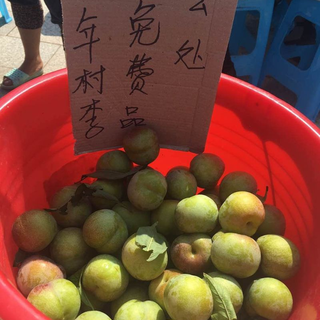 年村李
免费品
处